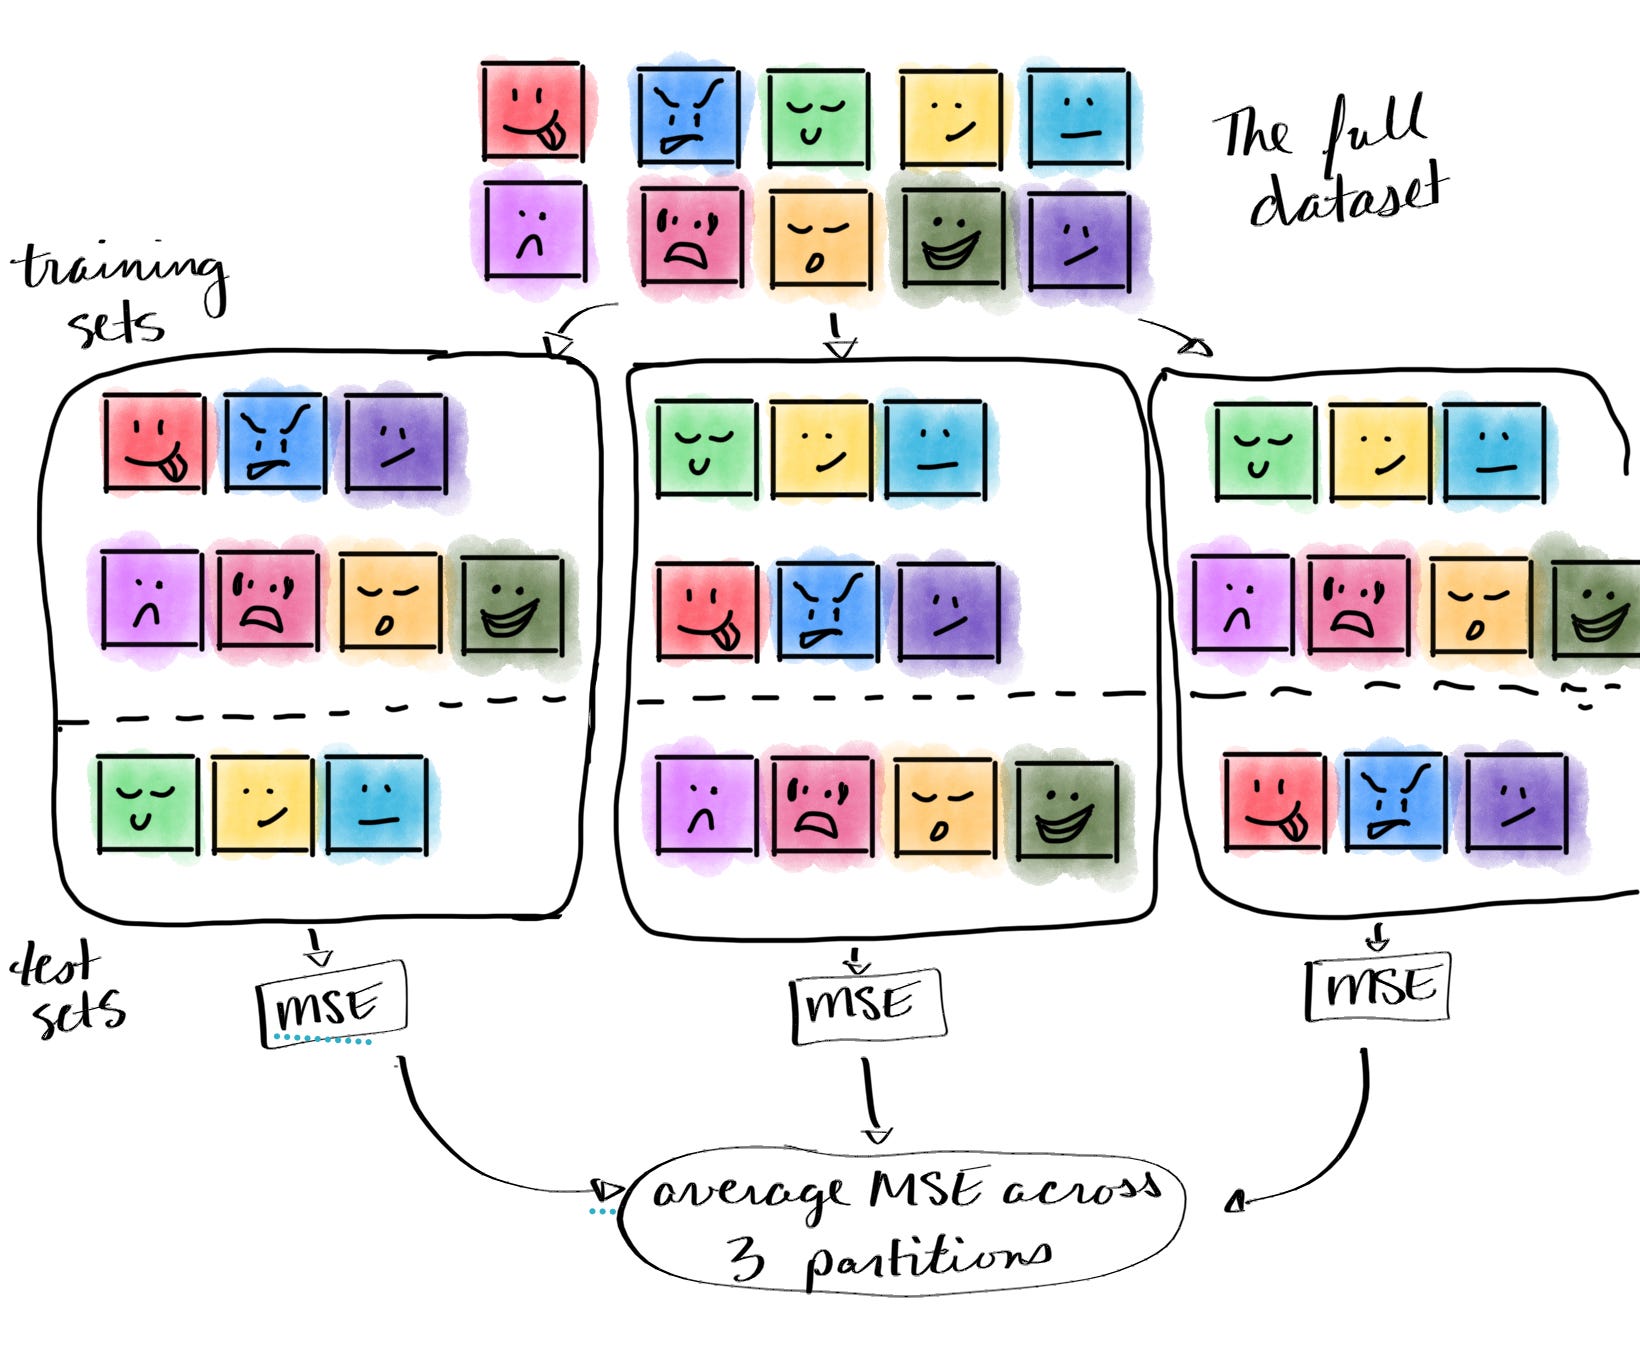 The full
dataset
training
sets
test
sets
MSE
MSE
MSE
average MSE across
3 partitions